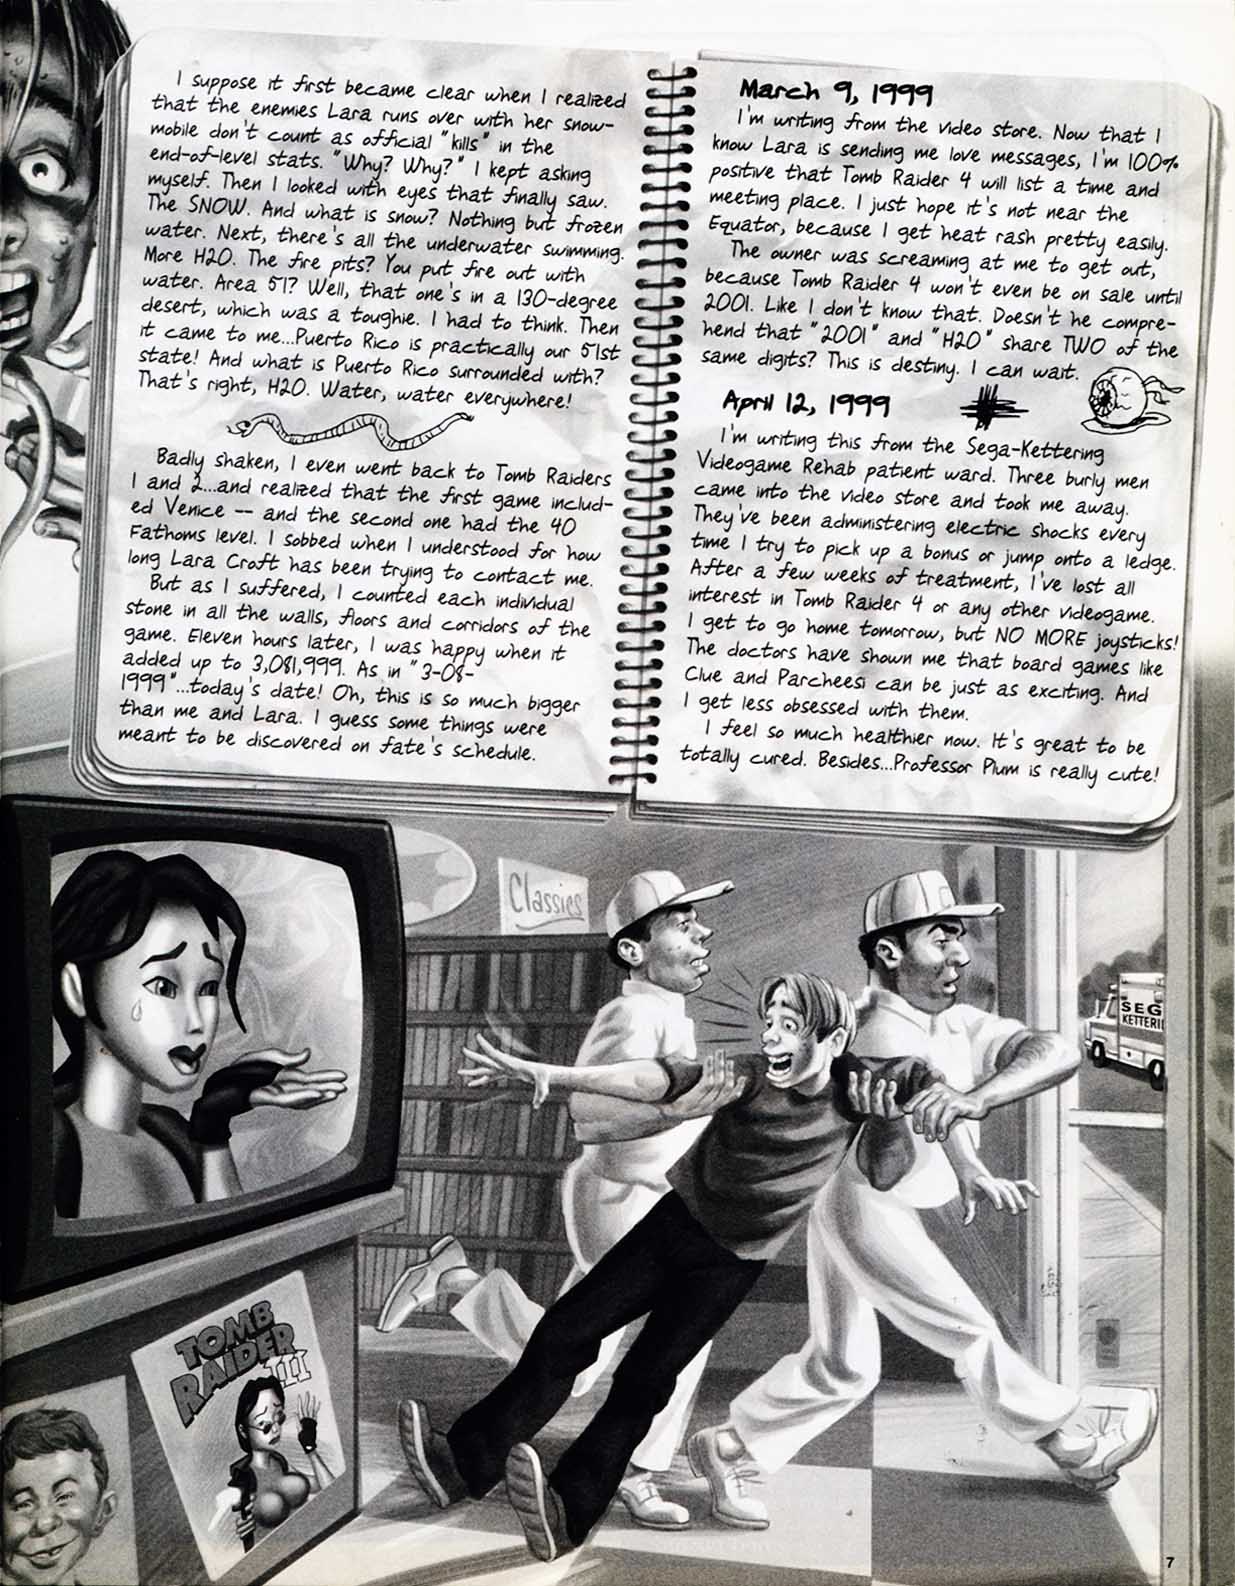 I suppose it first became clear when I realized
that the enemies Lara runs over with her snow-
mobile don't count as official "kills" in the
end-of-level stats. "Why? Why?" I kept asking
myself. Then I looked with eyes that finally saw.
The SNOW. And what is snow? Nothing but frozen
water. Next, there's all the underwater swimming.
More H2O. The fire pits? You put fire out with
water. Area 51? Well, that one's in a 130-degree
desert, which was a toughie. I had to think. Then
it came to me...Puerto Rico is practically our 51st
state! And what is Puerto Rico surrounded with?
That's right, H2O. Water, water everywhere!
Badly shaken, I even went back to Tomb Raiders
1 and 2...and realized that the first game includ-
ed Venice -- and the second one had the 40
Fathoms level. I sobbed when I understood for how
long Lara Croft has been trying to contact me.
But as I suffered, I counted each individual
stone in all the walls, floors and corridors of the
game. Eleven hours later, I was happy when it
added up to 3,081,999. As in "3-08-
1999"...today's date! Oh, this is so much bigger
than me and Lara. I guess some things were
meant to be discovered on fate's schedule.
March 9, 1999
I'm writing from the video store. Now that I
know Lara is sending me love messages, I'm 100%
positive that Tomb Raider 4 will list a time and
meeting place. I just hope it's not near the
Equator, because I get heat rash pretty easily.
The owner was screaming at me to get out,
because Tomb Raider 4 won't even be on sale until
2001. Like I don't know that. Doesn't he compre-
hend that "2001" and "H2O" share TWO of the
same digits? This is destiny. I can wait.
April 12, 1999
I'm writing this from the Sega-Kettering
Videogame Rehab patient ward. Three burly men
came into the video store and took me away.
They've been administering electric shocks every
time I try to pick up a bonus or jump onto a ledge.
After a few weeks of treatment, I've lost all
interest in Tomb Raider 4 or any other videogame.
I get to go home tomorrow, but NO MORE joysticks!
The doctors have shown me that board games like
Clue and Parcheesi can be just as exciting. And
I get less obsessed with them.
I feel so much healthier now. It's great to be
totally cured. Besides...Professor Plum is really cute!
Classics
SEG
KETTERI
TOMB
RAIDER
III
7